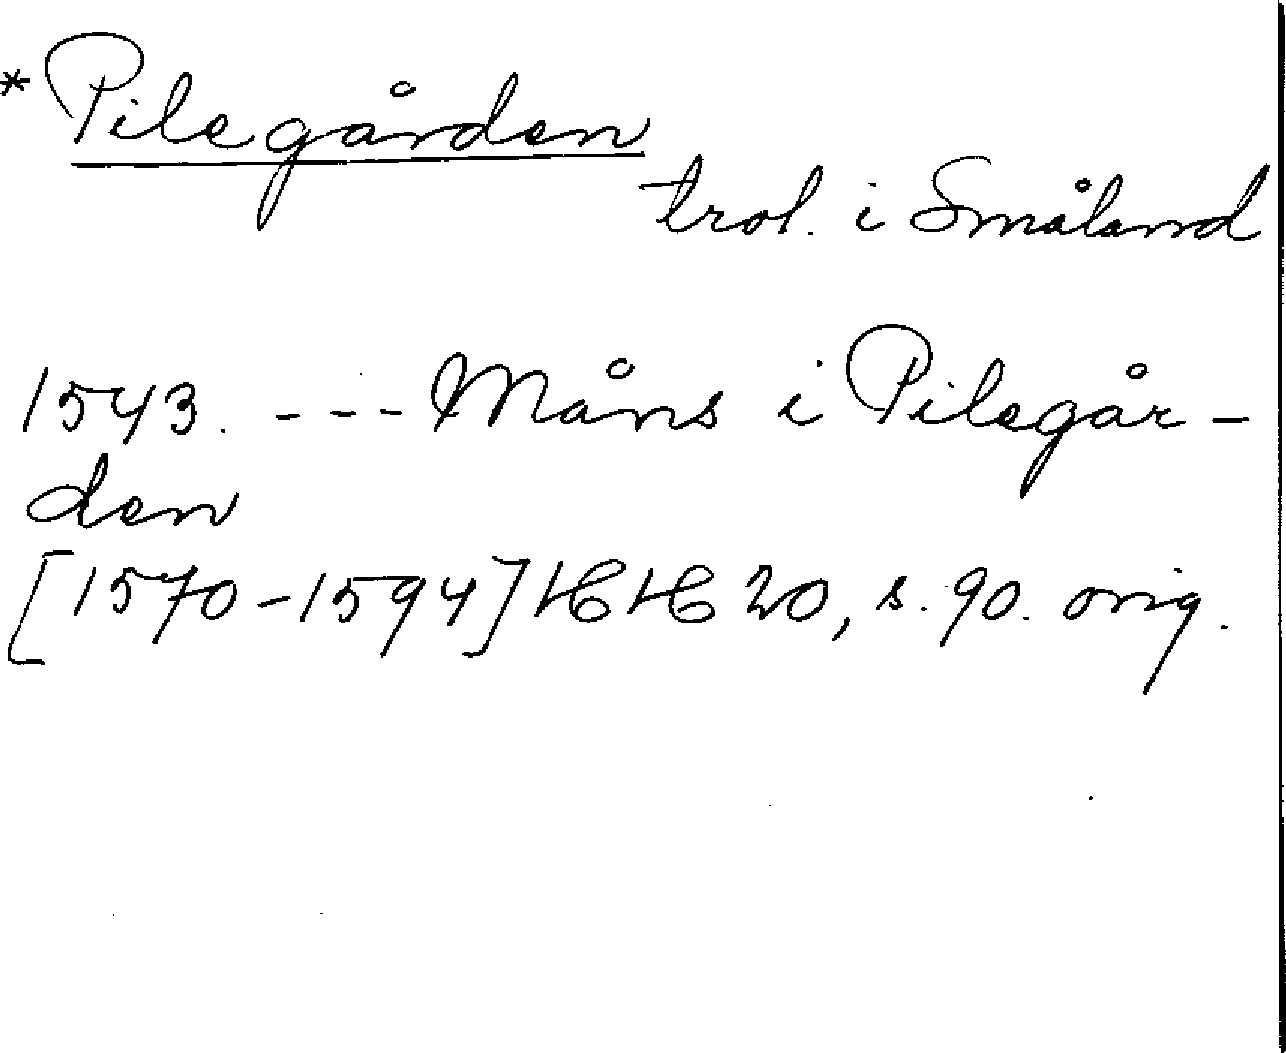 *Pilegården
trol. i Småland
1543. --- Måns i Pilegår-
den
[1570-1594] HH 20, s. 90. orig.